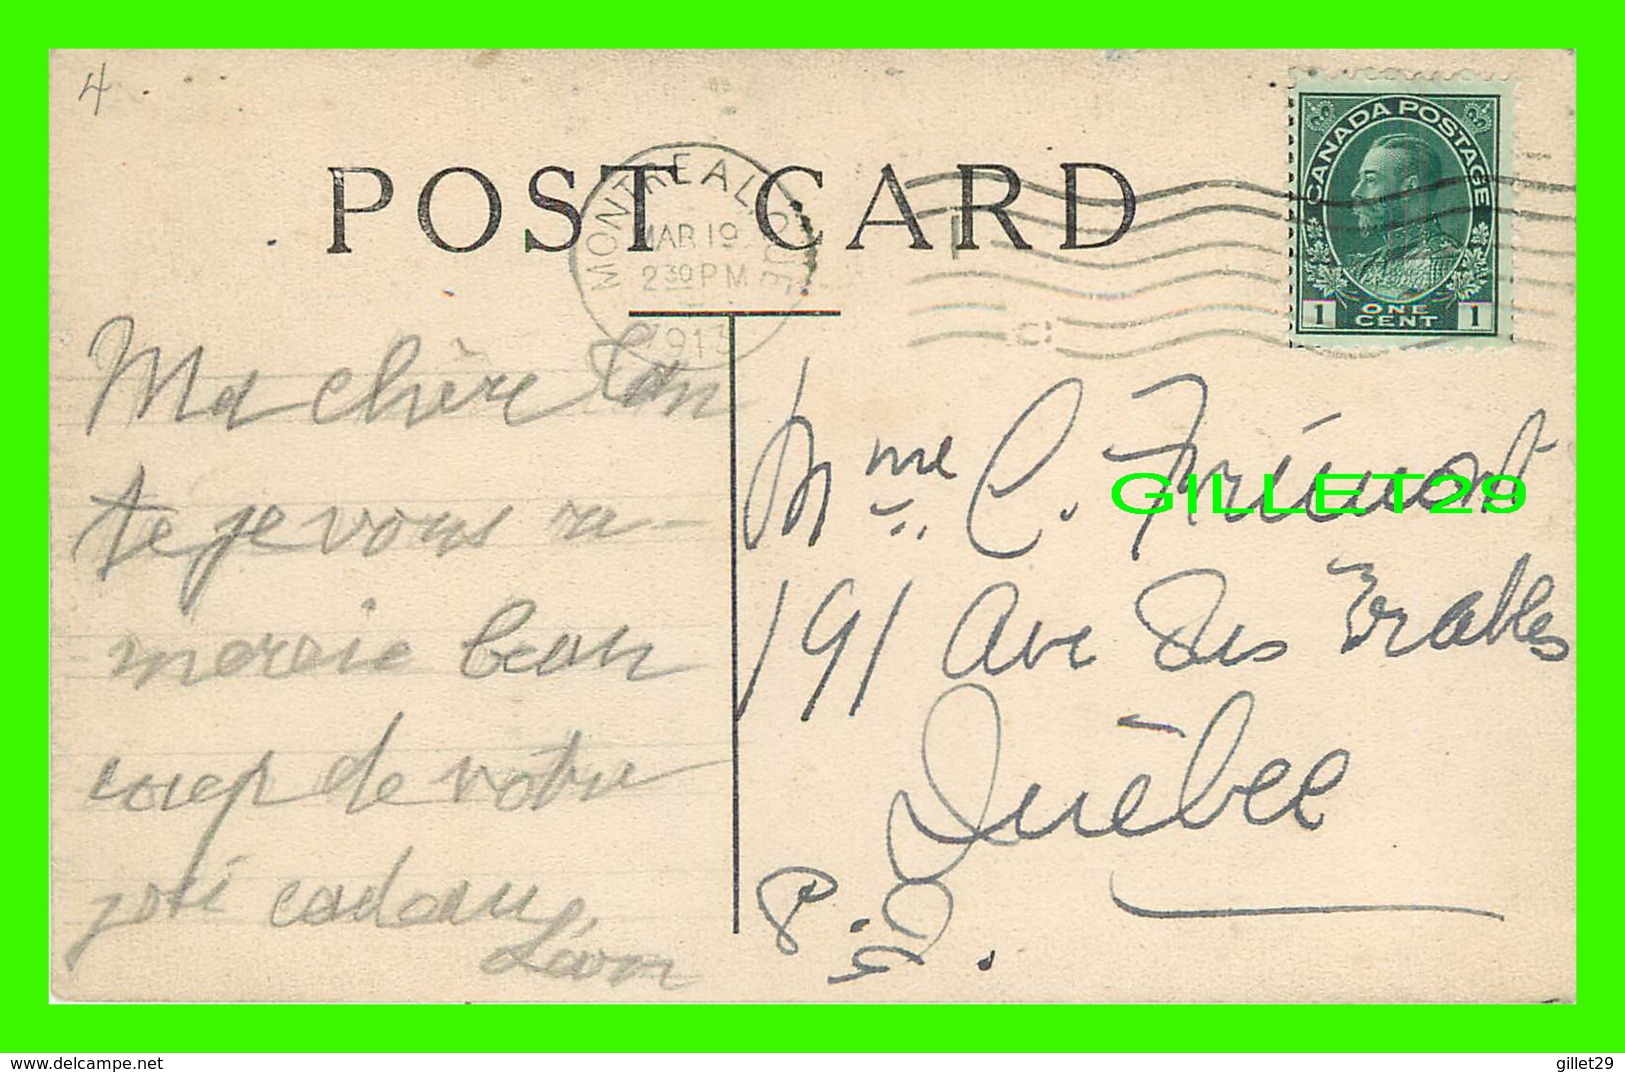 4
POST CARD
MONTREAL, QUE
MAR 19
2 30 PM
1913
CANADA POSTAGE
1 ONE CENT 1
Ma chère Tan
te je vous ra-
mercie beau
coup de votre
joli cadau.
Léon
Mme C. Frémont
191 Ave Des Erables
Québec
P. Q.
GILLET29
delcampe.net
gillet29